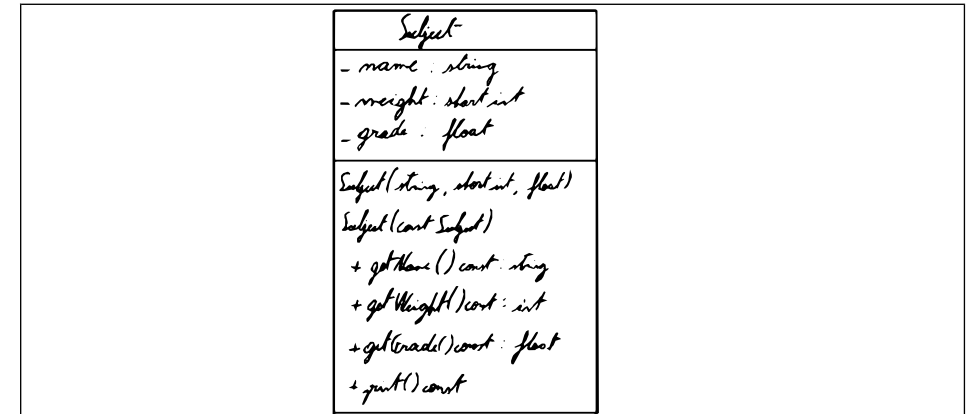 Subject
- name : string
- weight : short int
- grade : float
Subject(string, short int, float)
Subject(const Subject)
+ getName() const : string
+ getWeight() const : int
+ getGrade() const : float
+ print() const